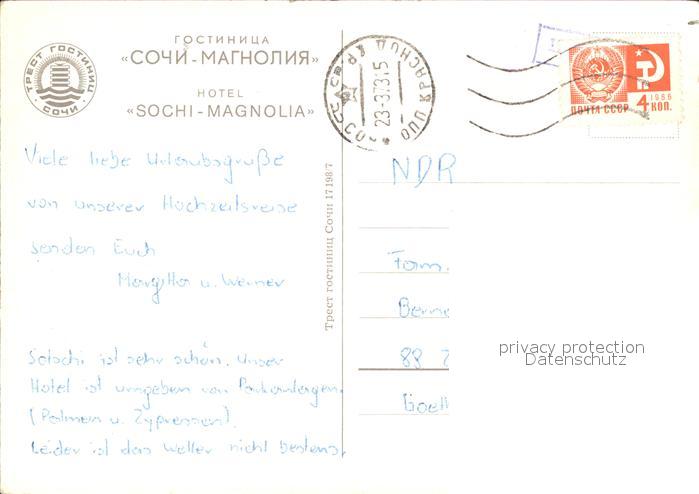 ГОСТИНИЦА
«СОЧИ-МАГНОЛИЯ»
HOTEL
«SOCHI-MAGNOLIA»
ТРЕСТ ГОСТИНИЦ
СОЧИ
23-8731
ПОЧТА СССР
1966
4 КОП.
Viele liebe Urlaubsgrüße
von unserer Hochzeitsreise
senden Euch
Margitta u. Werner
Sotschi ist sehr schön. Unser
Hotel ist umgeben von Parkanlagen
(Palmen u. Zypressen).
Leider ist das Wetter nicht bestens.
Трест гостиниц Сочи 17198/7
NDR
Fam.
88
Goeth
privacy protection
Datenschutz